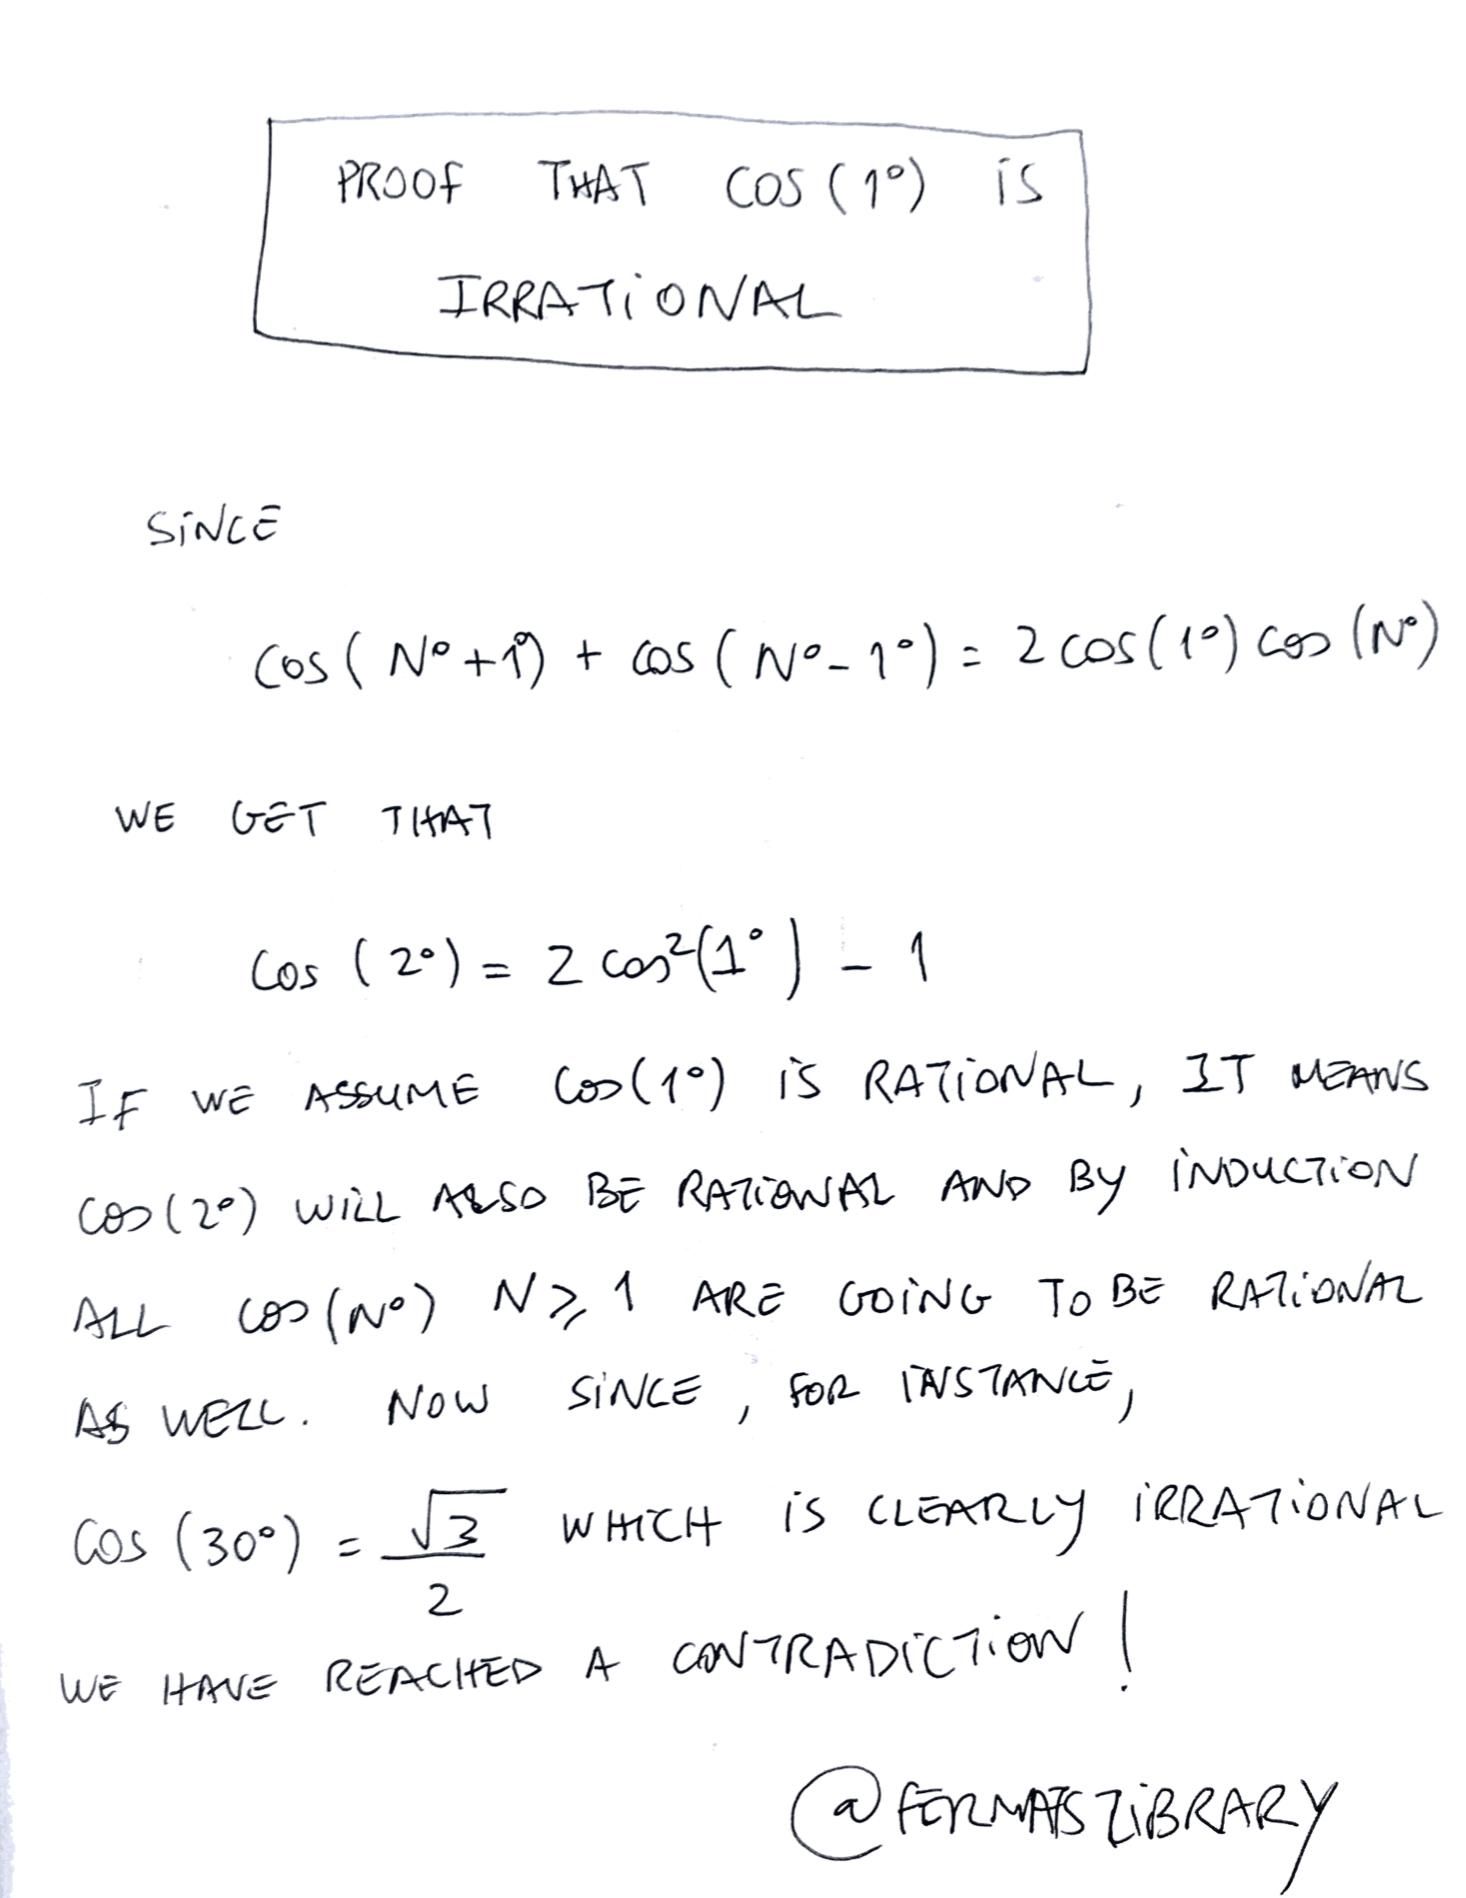 PROOF THAT COS(1°) IS
IRRATIONAL
SINCE
COS(N°+1°) + COS(N°-1°) = 2 COS(1°) COS(N°)
WE GET THAT
COS(2°) = 2 COS²(1°) - 1
IF WE ASSUME COS(1°) IS RATIONAL, IT MEANS
COS(2°) WILL ALSO BE RATIONAL AND BY INDUCTION
ALL COS(N°) N ⩾ 1 ARE GOING TO BE RATIONAL
AS WELL. NOW SINCE, FOR INSTANCE,
COS(30°) = √3/2 WHICH IS CLEARLY IRRATIONAL
WE HAVE REACHED A CONTRADICTION!
@FERMATSLIBRARY